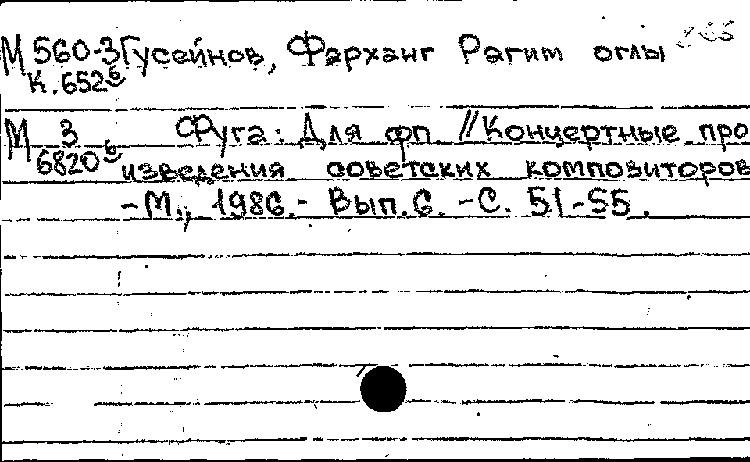 М 560-3 Гусейнов, Фарханг Рагим оглы
К.652б
М 3 Фуга: Для фп. // Концертные про
6820 б изведения советских композиторов
-М., 1986.- Вып.6. -С. 51-55.